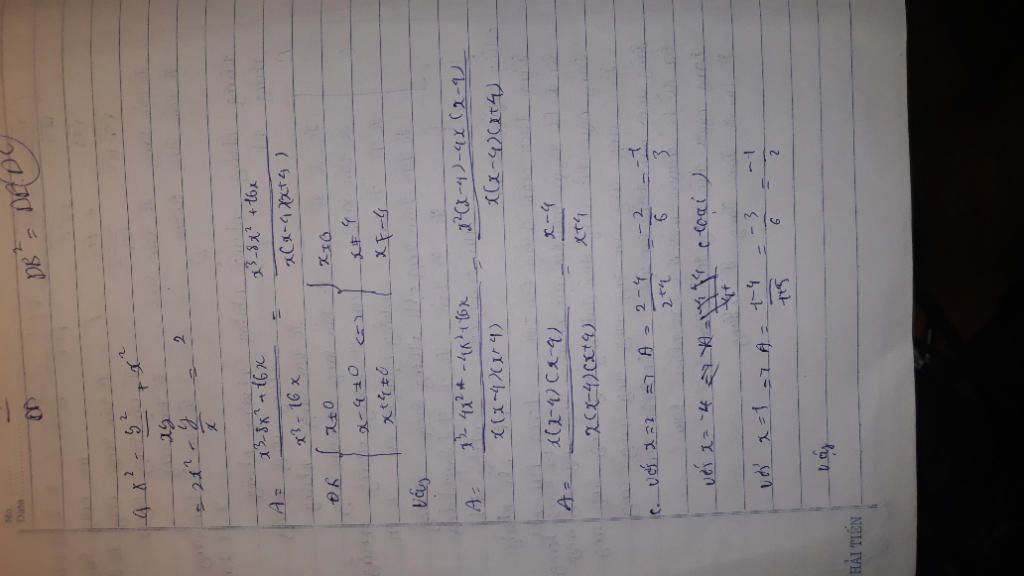 No.
Date
DB² = DA.DC
x² - y²/xy + x²
= 2x² - y/x = 2
A = (x³-8x²+16x)/(x³-16x) = (x³-8x²+16x)/(x(x-4)(x+4))
Đk { x≠0 { x≠0
x-4≠0 <=> x≠4
x+4≠0 x≠-4
Vậy
A = (x³-4x²-4x²+16x)/(x(x-4)(x+4)) = (x²(x-4)-4x(x-4))/(x(x-4)(x+4))
A = x(x-4)(x-4)/(x(x-4)(x+4)) = (x-4)/(x+4)
c. với x=2 => A = (2-4)/(2+4) = -2/6 = -1/3
với x=-4 => A = (loại)
với x=1 => A = (1-4)/(1+5) = -3/6 = -1/2
Vậy
HẢI TIẾN